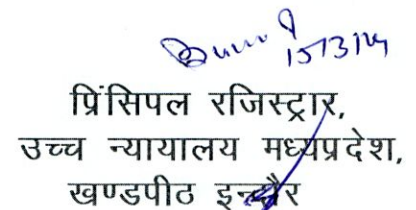 15/3/24
प्रिंसिपल रजिस्ट्रार,
उच्च न्यायालय मध्यप्रदेश,
खण्डपीठ इन्दौर